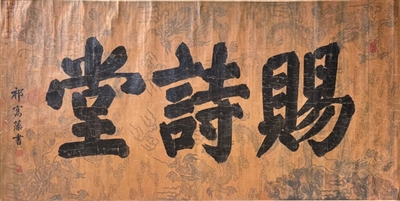 賜詩堂
祁寯藻書